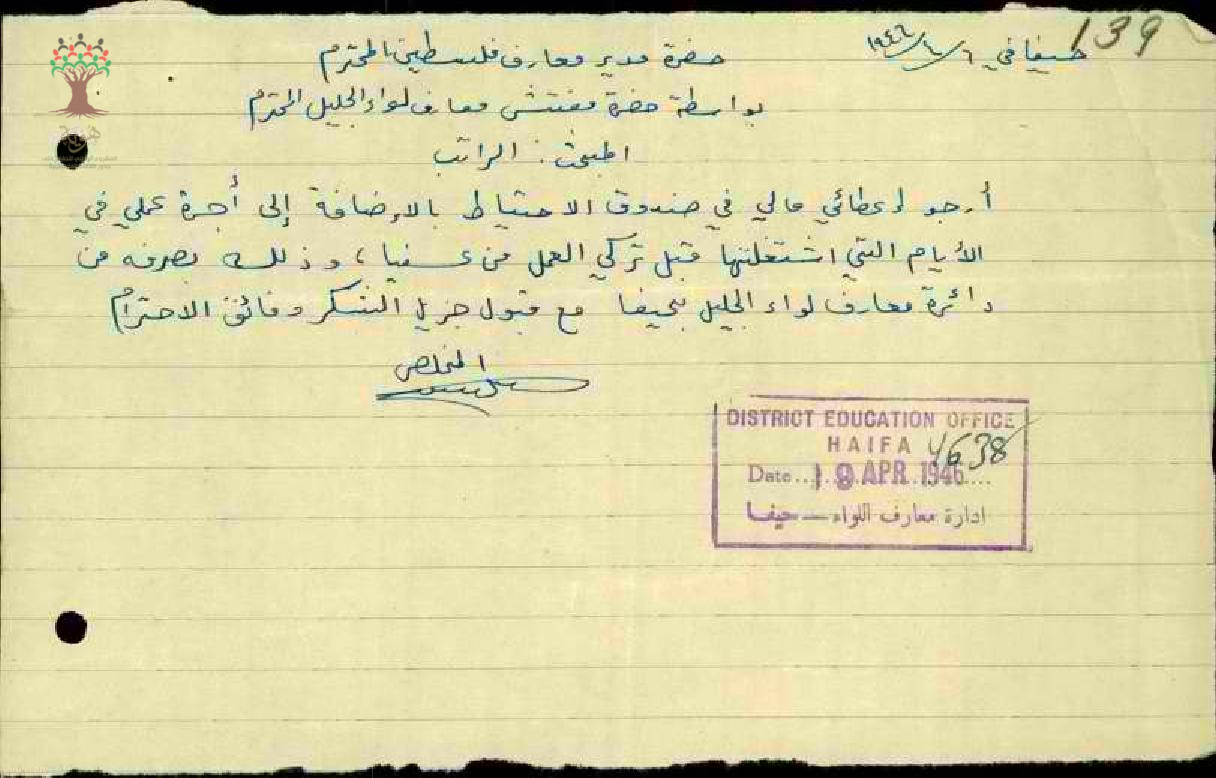 139
حيفا في ٦/٦/١٩٤٦
حضرة مدير معارف فلسطين المحترم
بواسطة حضرة مفتش معارف لواء الجليل المحترم
المبحث : الراتب
أرجو إعطائي مالي في صندوق الاحتياط بالإضافة إلى أجرة عملي في
الأيام التي اشتغلتها قبل تركي العمل من عسفيا ، وذلك بصرفه من
دائرة معارف لواء الجليل بحيفا مع قبول جزيل الشكر وفائق الاحترام
المخلص
DISTRICT EDUCATION OFFICE
HAIFA 4638
Date... 19 APR 1946....
ادارة معارف اللواء — حيفا
هوية